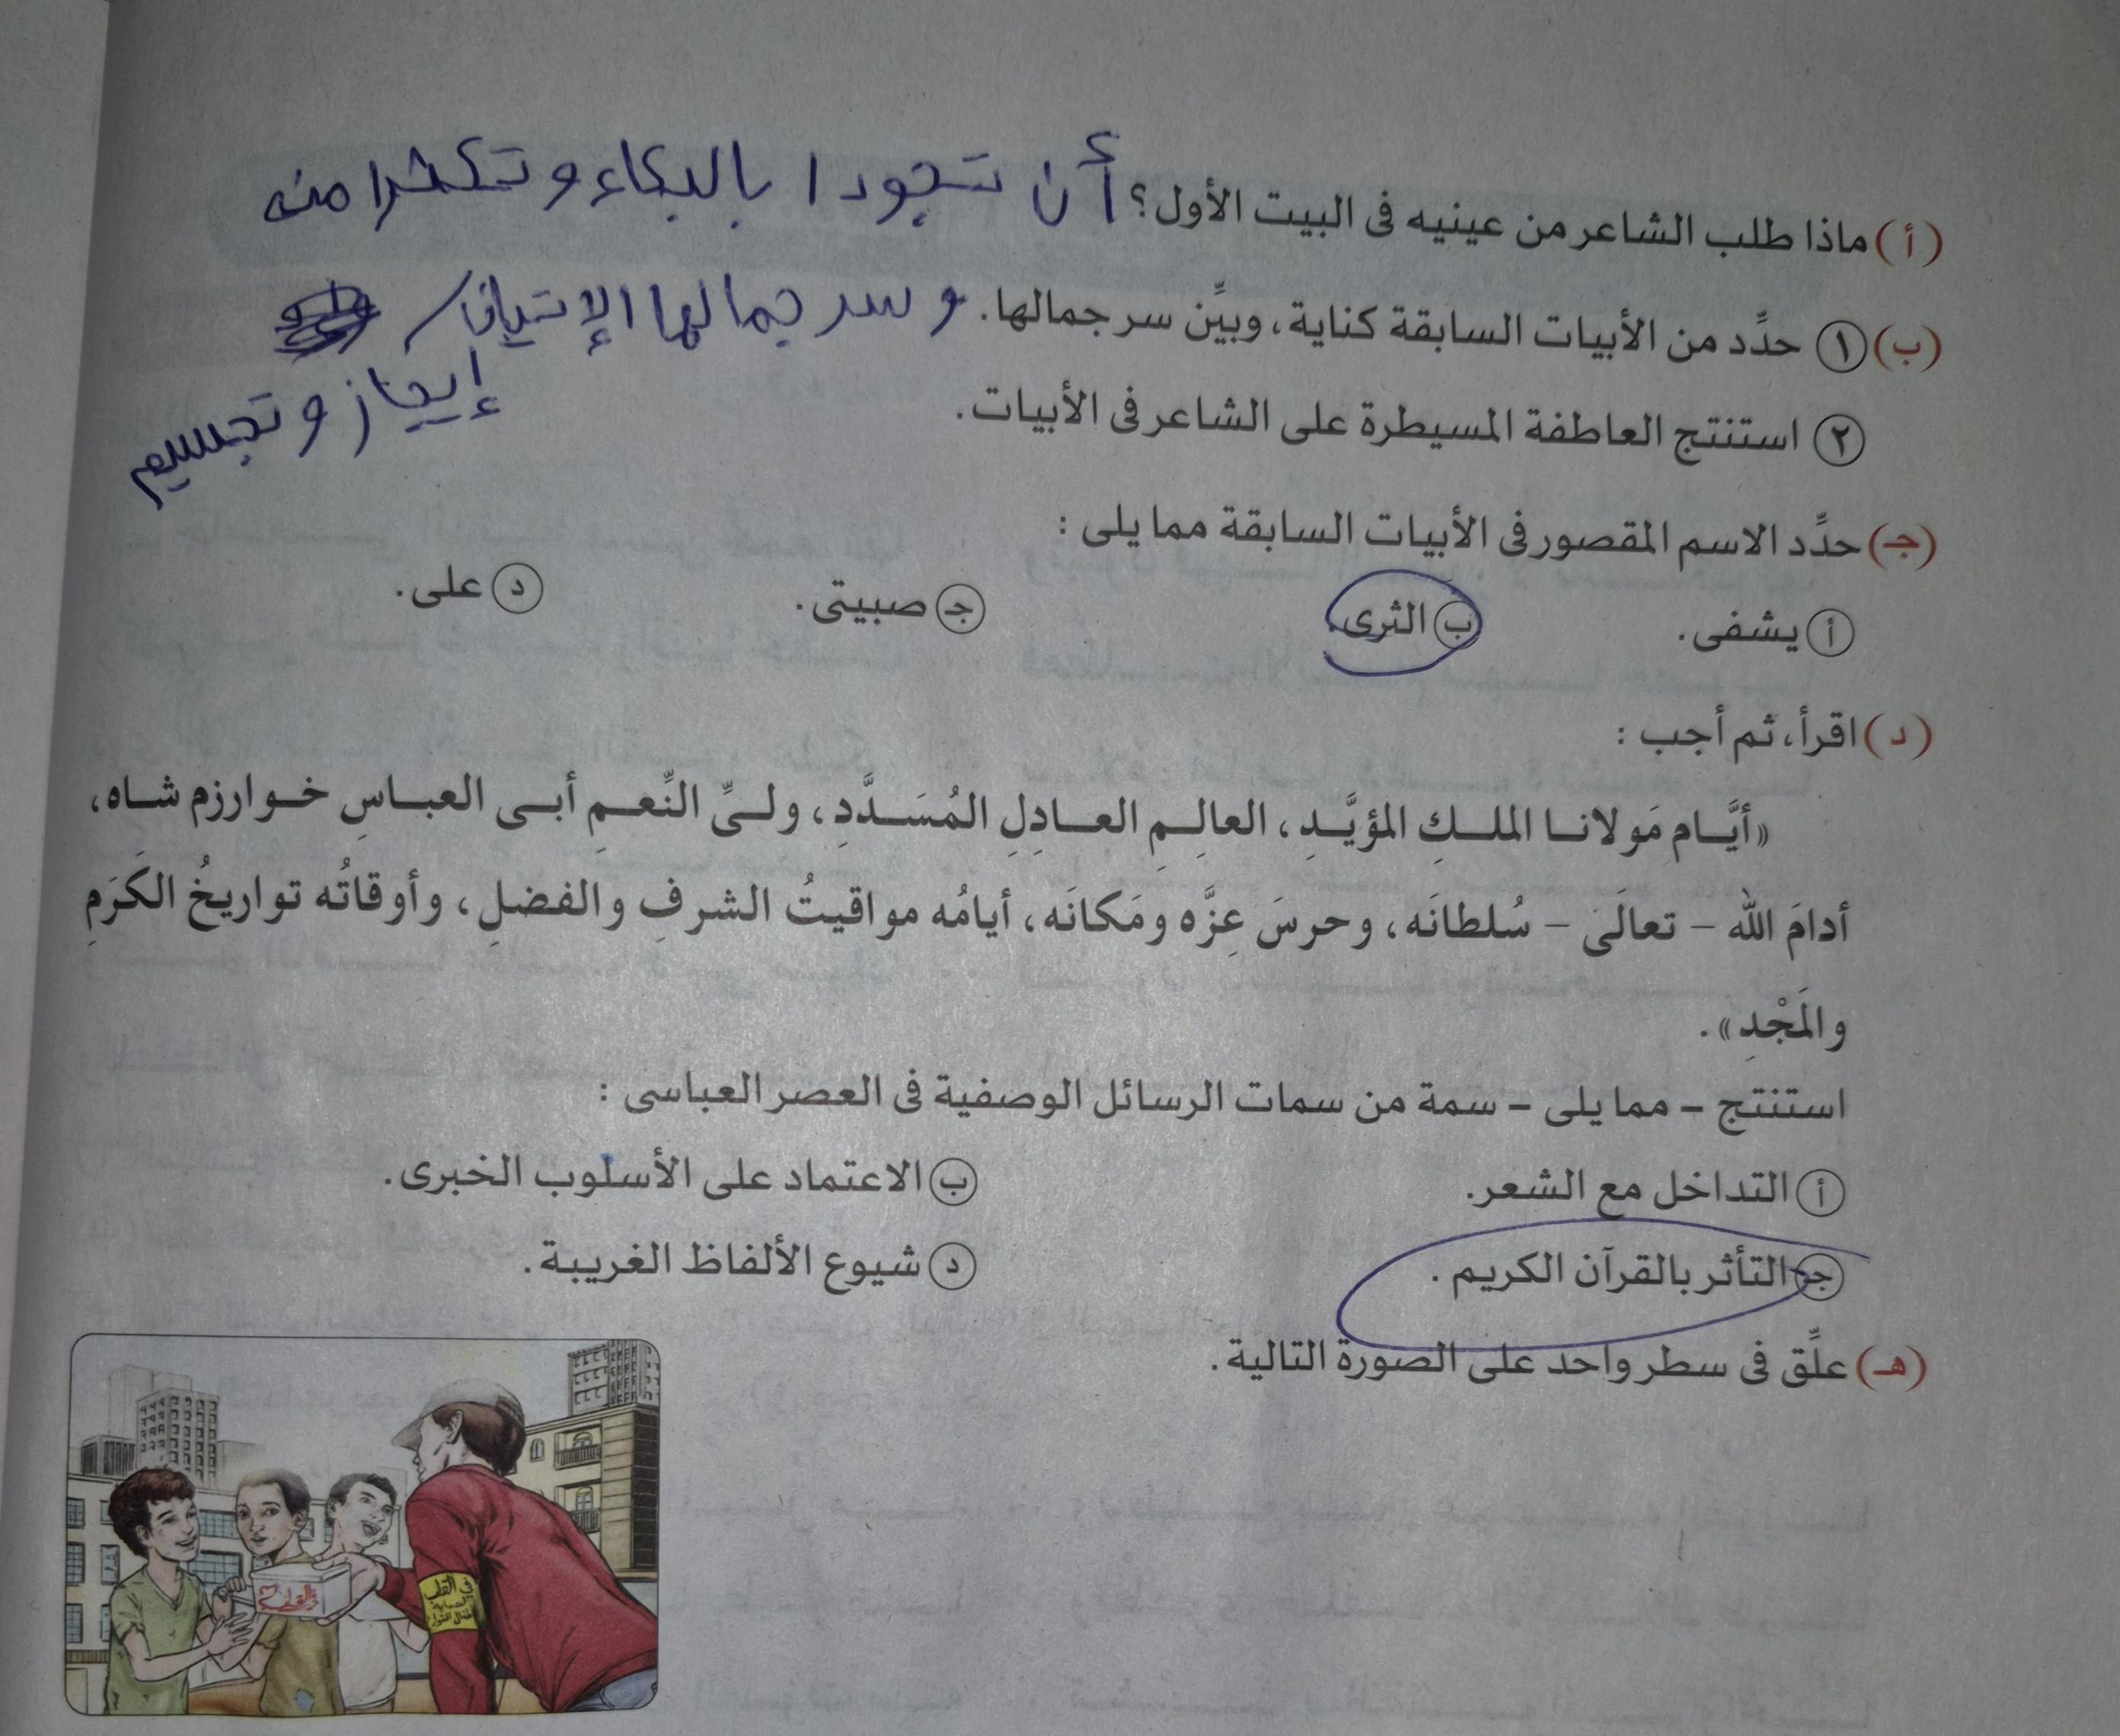 (أ) ماذا طلب الشاعر من عينيه فى البيت الأول؟ أن تجودا بالبكاء وتكثرا منه
(ب) ١ حدِّد من الأبيات السابقة كناية، وبيِّن سر جمالها. و سر جمالها الإتيان
إيجاز و تجسيم
٢ استنتج العاطفة المسيطرة على الشاعر فى الأبيات.
(جـ) حدِّد الاسم المقصور فى الأبيات السابقة مما يلى :
أ يشفى. ب الثرى. جـ صبيتى. د على.
(د) اقرأ، ثم أجب :
«أيَّام مَولانا الملكِ المؤيَّدِ، العالِمِ العادِلِ المُسَدَّدِ، ولىِّ النِّعمِ أبى العباسِ خوارزم شاه،
أدامَ الله – تعالَى – سُلطانَه، وحرسَ عِزَّه ومَكانَه، أيامُه مواقيتُ الشرفِ والفضلِ، وأوقاتُه تواريخُ الكَرَمِ
والمَجْدِ».
استنتج – مما يلى – سمة من سمات الرسائل الوصفية فى العصر العباسى :
أ التداخل مع الشعر. ب الاعتماد على الأسلوب الخبرى.
جـ التأثر بالقرآن الكريم. د شيوع الألفاظ الغريبة.
(هـ) علِّق فى سطر واحد على الصورة التالية.
فى القلب